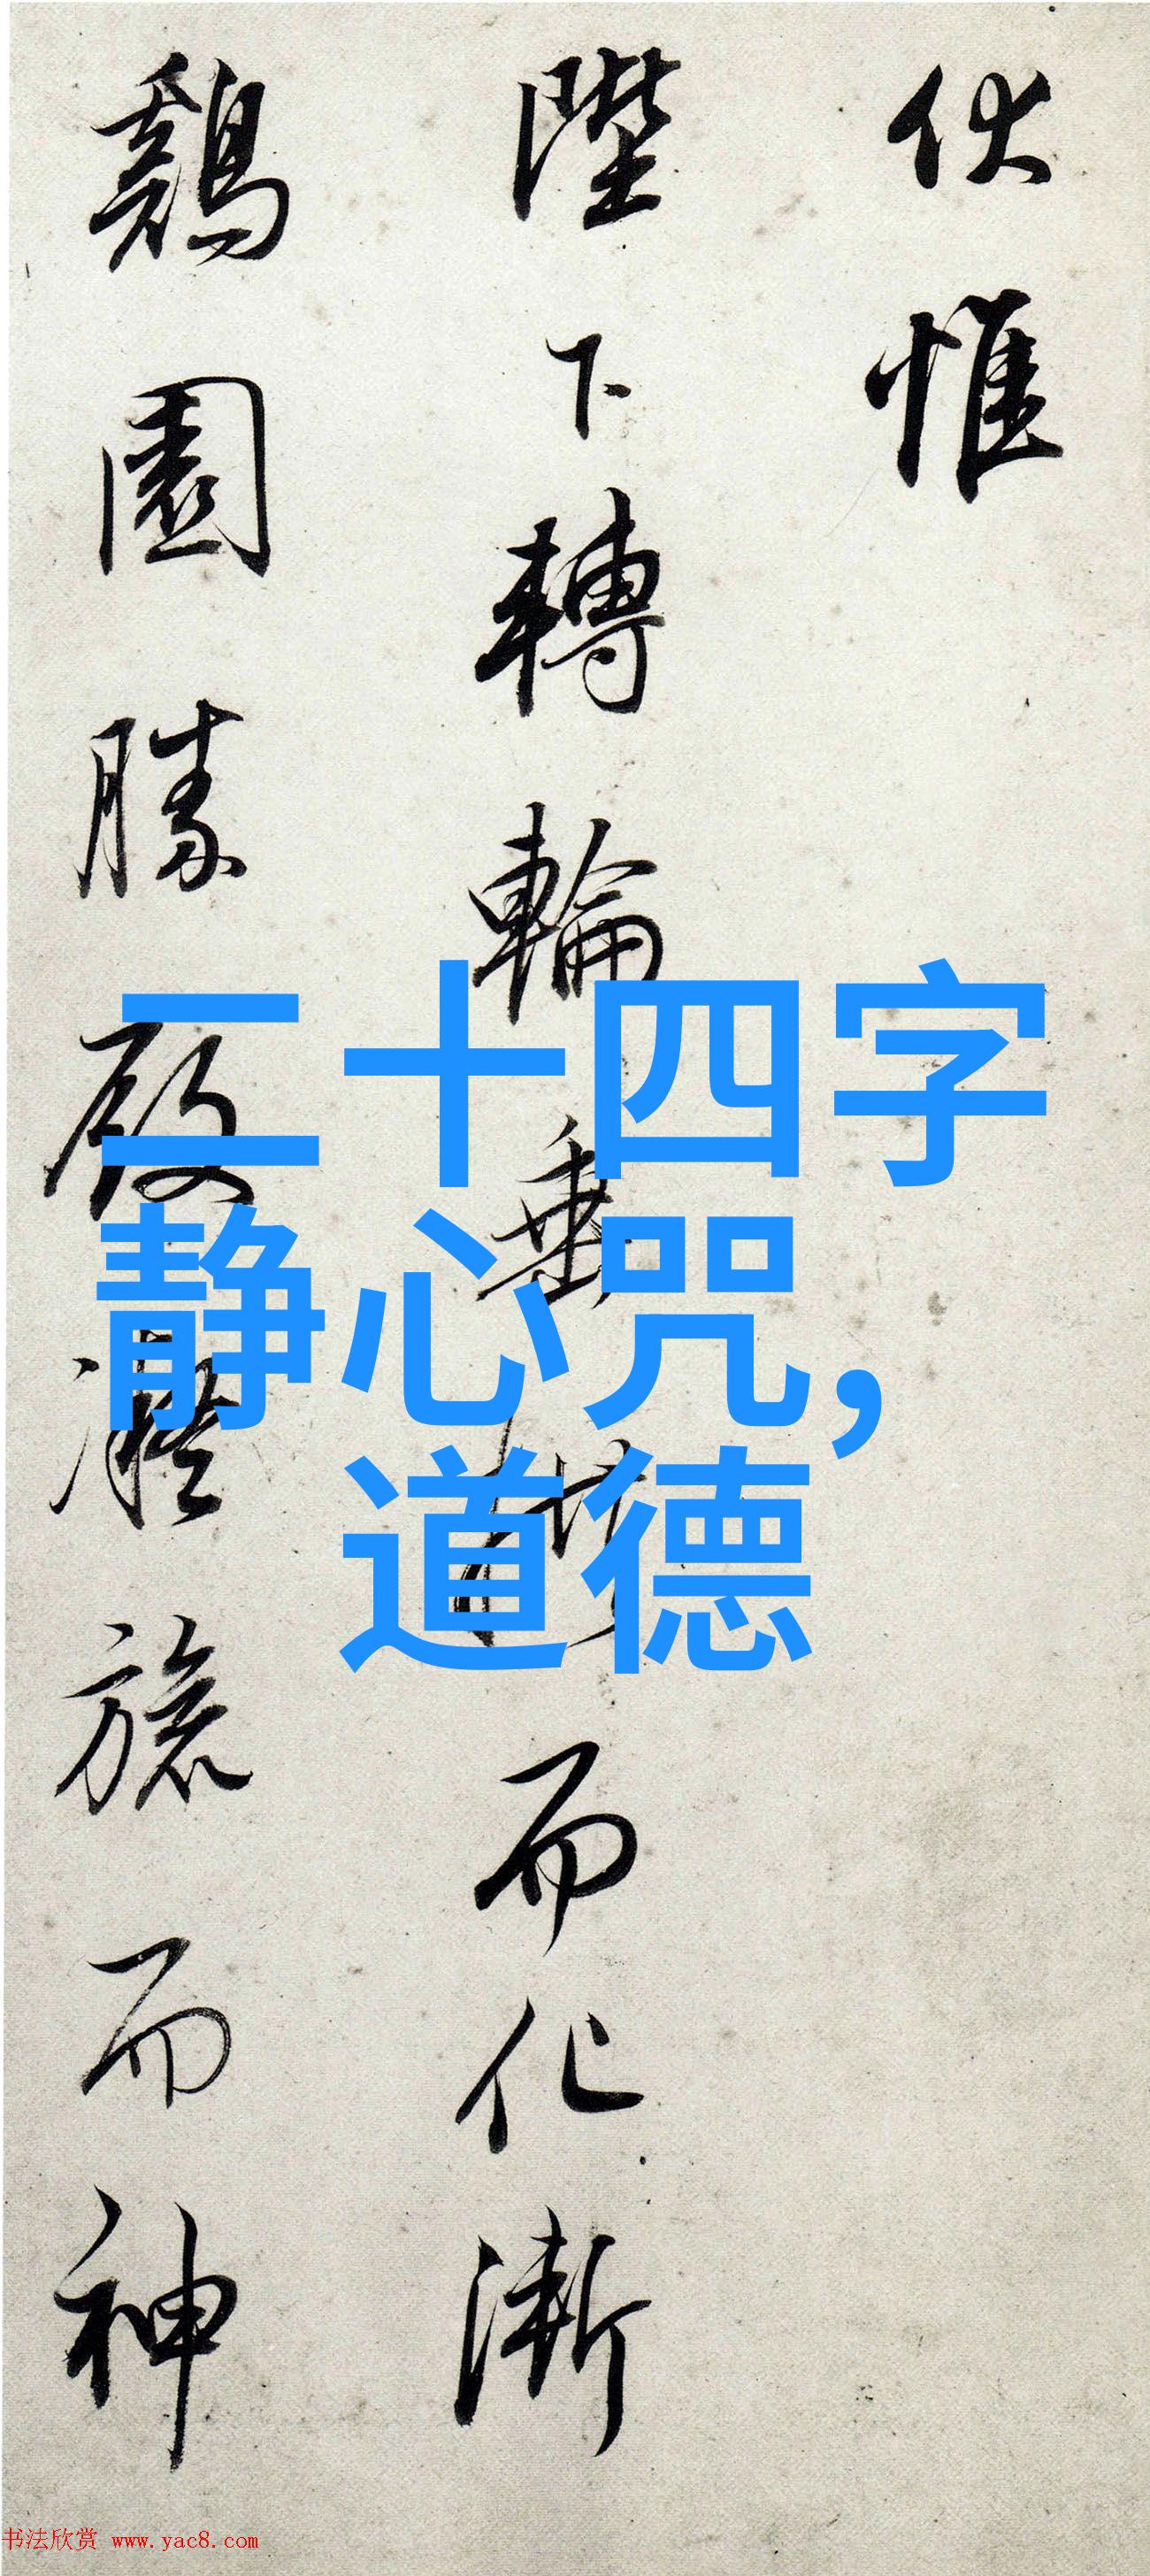 伏惟
陛下轉輪垂拱而化漸
鷄園勝殿凝旒而神
二十四字
静心咒，
道德
书法欣赏 www.yac8.com